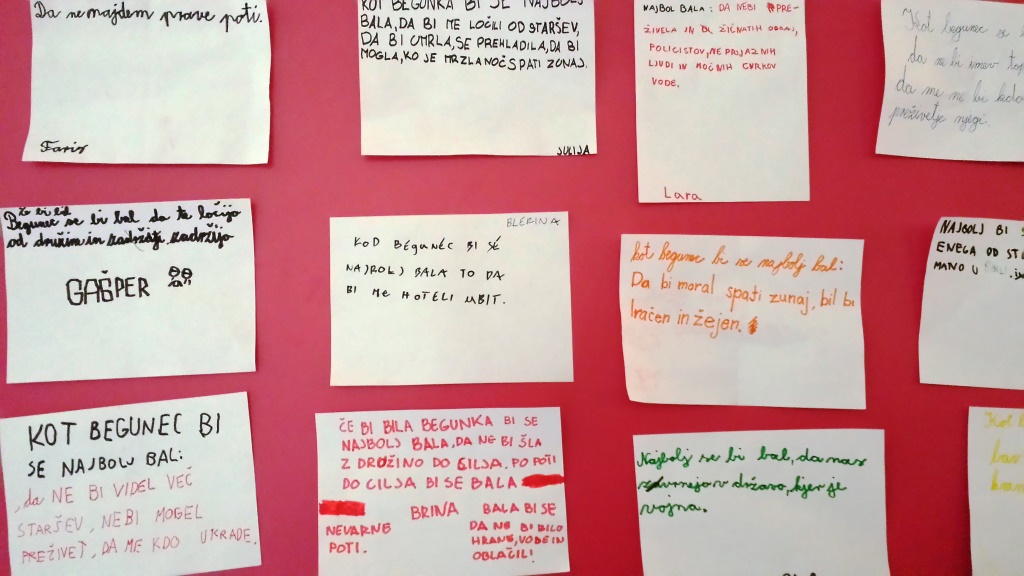 Da ne majdem prave poti.
Faris
KOT BEGUNKA BI SE NAJBOLJ
BALA, DA BI ME LOČILI OD STARŠEV,
DA BI UMRLA, SE PREHLADILA, DA BI
MOGLA, KO JE MRZLA NOČ SPATI ZUNAJ.
JULIJA
NAJBOL BALA: DA NEBI PRE-
ŽIVELA IN
ŽIČNATIH OGRAJ,
POLICISTOV, NE PRIJAZNIH
LJUDI IN MOČNIH CURKOV
VODE.
Lara
Kot begunec se
da ne bi imev
da me ne bi
preživetje njegi.
že bi bil
Begunec se bi bal da te ločijo
od družin in zadržijo
GAŠPER
BLERINA
KOD BEGUNEC BI SE
NAJBOLJ BALA TO DA
BI ME HOTELI UBIT.
kot begunec bi se najbolj bal:
Da bi moral spati zunaj, bil bi
lračen in žejen.
NAJBOLJ BI
ENEGA OD
MANO U
KOT BEGUNEC BI
SE NAJBOLJ BAL:
da NE BI VIDEL VEČ
STARŠEV, NEBI MOGEL
PREŽIVET, DA ME KDO UKRADE.
ČE BI BILA BEGUNKA BI SE
NAJBOLJ BALA, DA NE BI ŠLA
Z DROŽINO DO CILJA. PO POTI
DO CILJA BI SE BALA
NEVARNE
POTI.
BRINA
BALA BI SE
DA NE BI BILO
HRANE, VODE IN
OBLAČIL!
Najbolj se bi bal, da nas
zavrnejo v državo, kjer je
vojna.
Kot